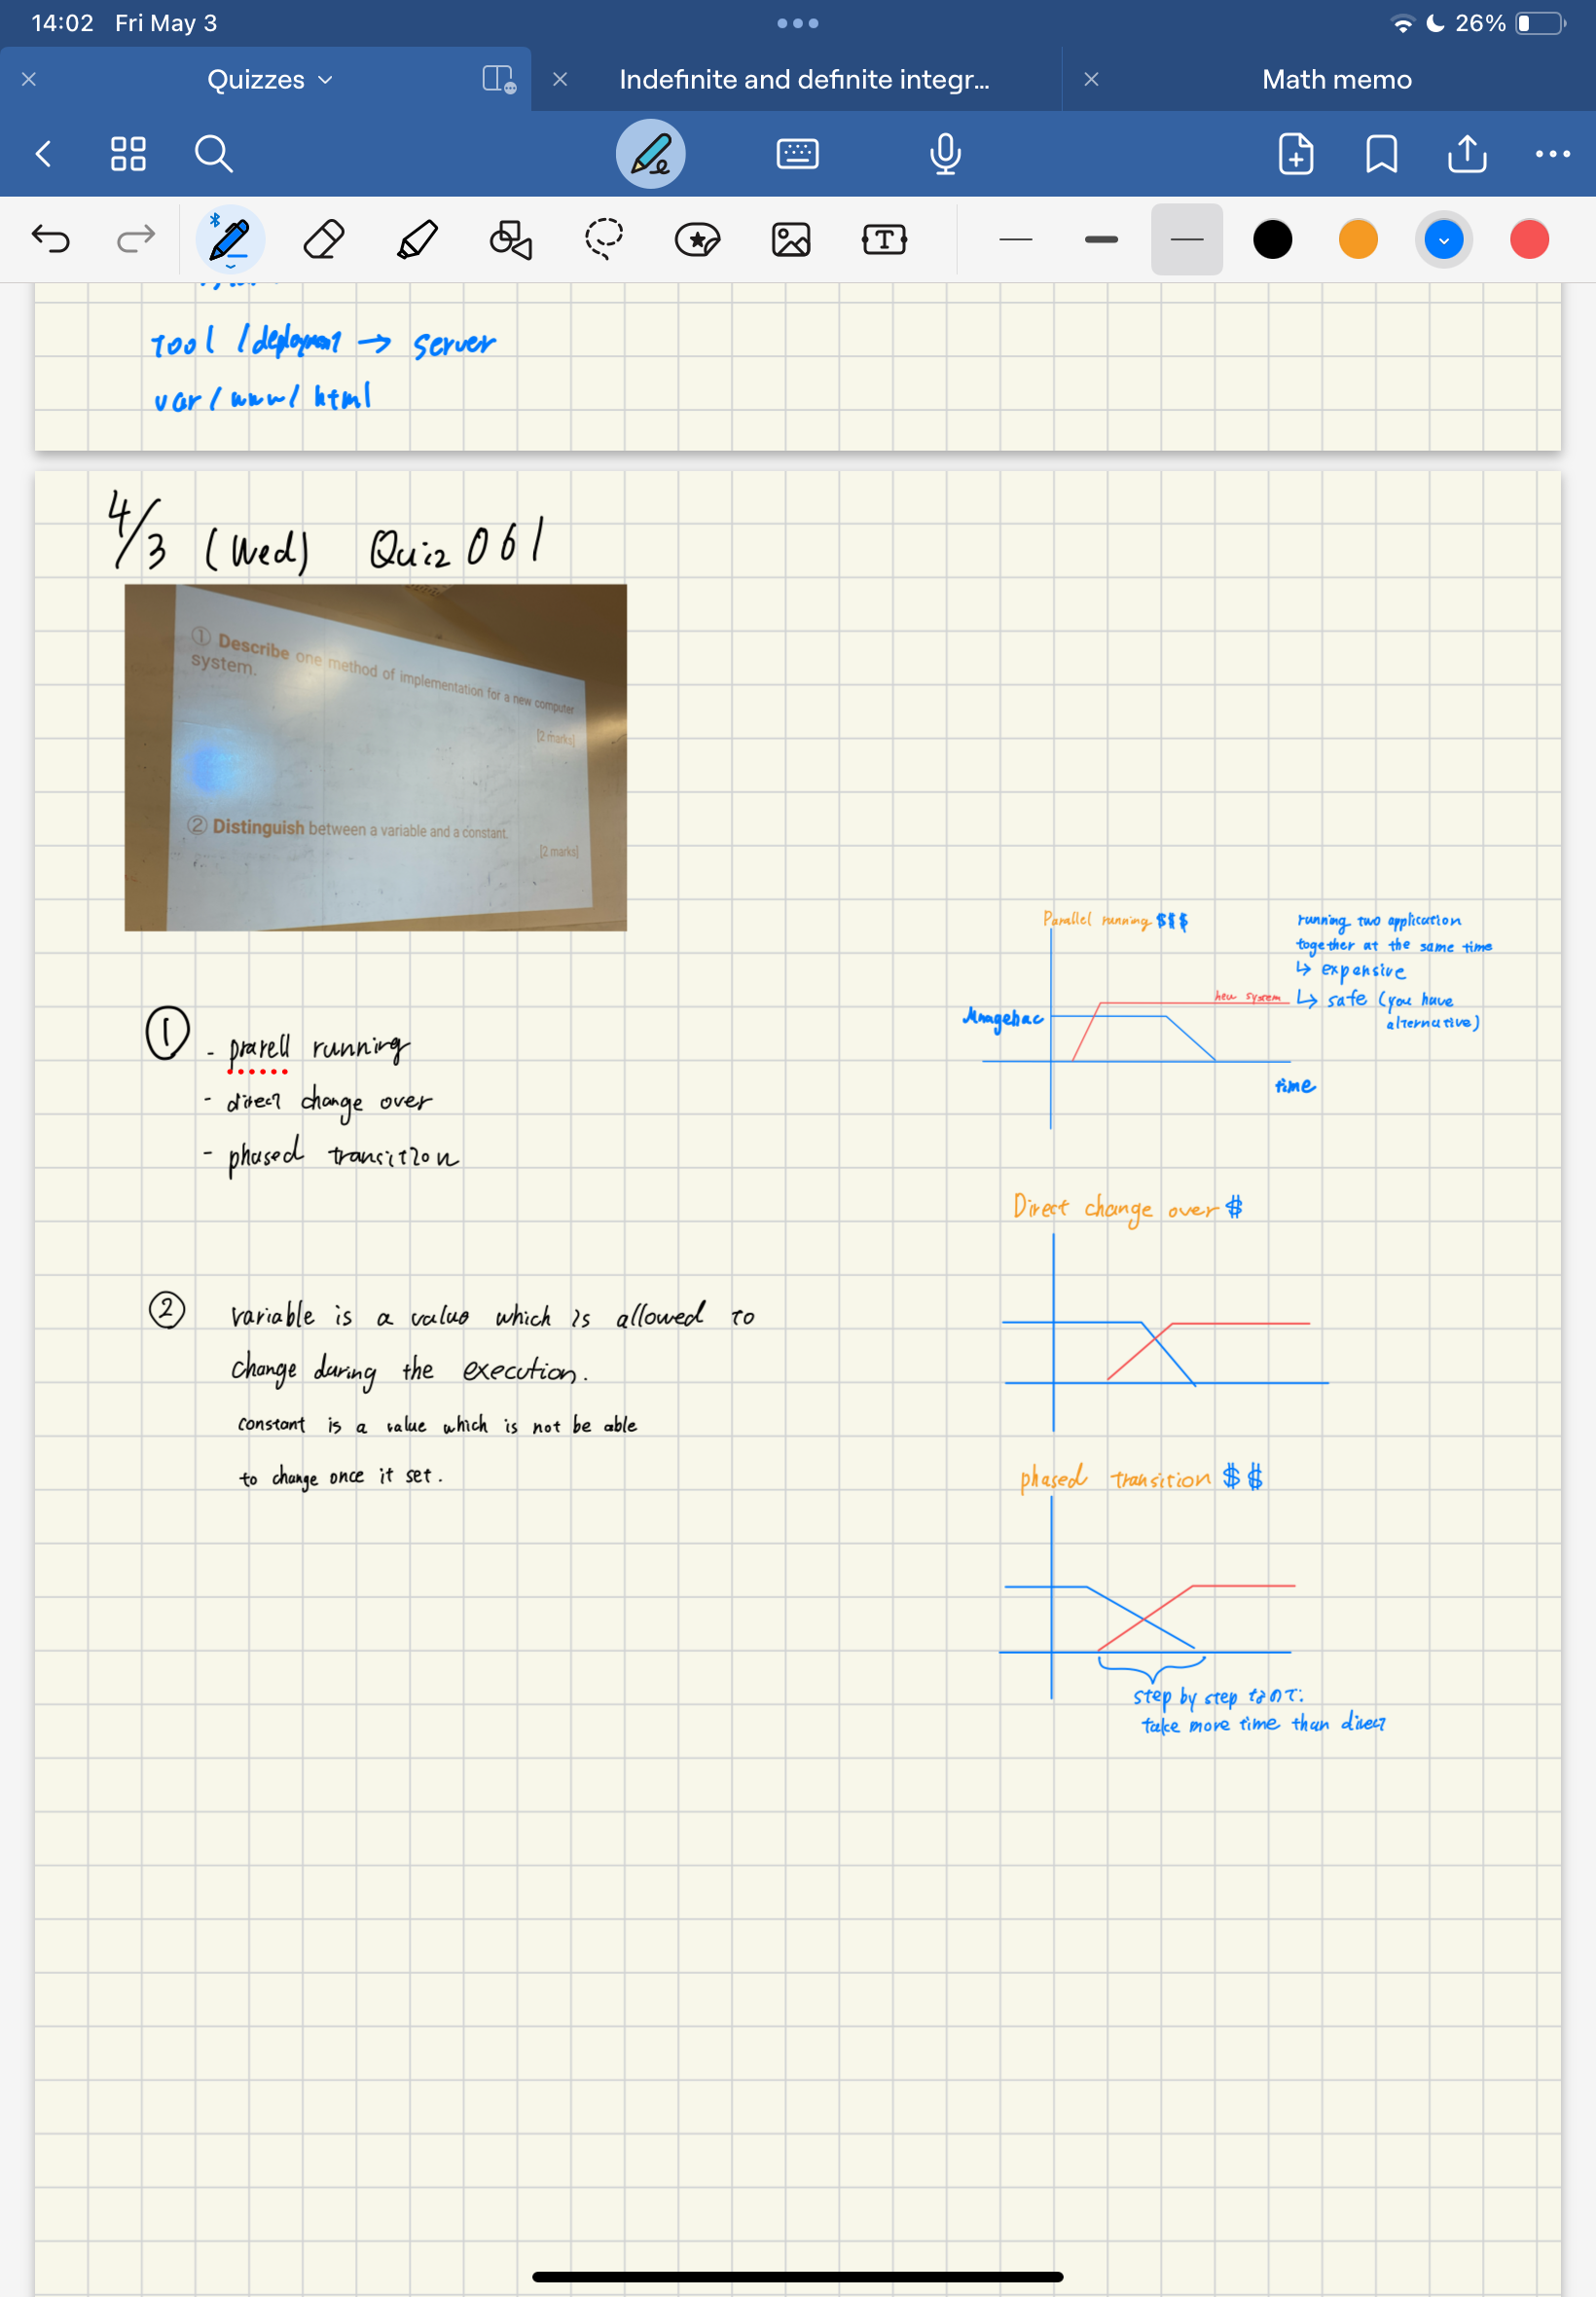 14:02 Fri May 3
26%
Quizzes
Indefinite and definite integr...
Math memo
tool / deployment → server
var / www / html
4/3 (Wed) Quiz 061
① Describe one method of implementation for a new computer
system.
[2 marks]
② Distinguish between a variable and a constant.
[2 marks]
①
- prarell running
- direct change over
- phased transition
② variable is a value which is allowed to
change during the execution.
constant is a value which is not be able
to change once it set.
Parallel running $$$
new system
Managebac
time
running two application
together at the same time
↳ expensive
↳ safe (you have
alternative)
Direct change over $
phased transition $$
step by step なので:
take more time than direct